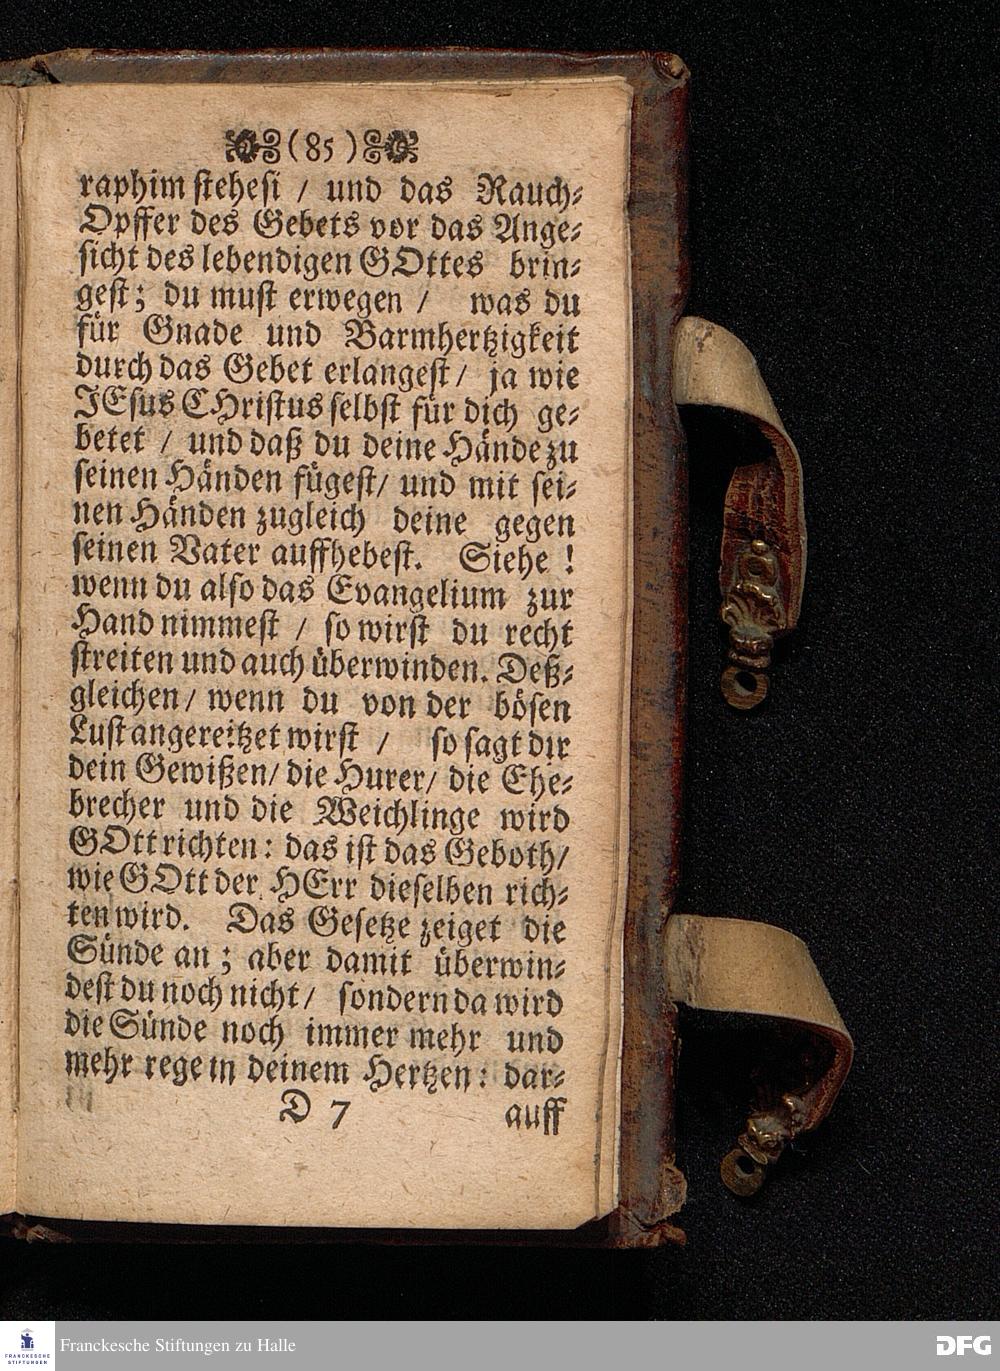 (85)
raphim stehest / und das Rauch-
Opffer des Gebets vor das Ange-
sicht des lebendigen GOttes brin-
gest; du must erwegen / was du
für Gnade und Barmhertzigkeit
durch das Gebet erlangest / ja wie
JEsus CHristus selbst für dich ge-
betet / und daß du deine Hände zu
seinen Händen fügest / und mit sei-
nen Händen zugleich deine gegen
seinen Vater auffhebest. Siehe !
wenn du also das Evangelium zur
Hand nimmest / so wirst du recht
streiten und auch überwinden. Deß-
gleichen / wenn du von der bösen
Lust angereitzet wirst / so sagt dir
dein Gewißen / die Hurer / die Ehe-
brecher und die Weichlinge wird
GOtt richten: das ist das Geboth /
wie GOtt der HErr dieselben rich-
ten wird. Das Gesetze zeiget die
Sünde an ; aber damit überwin-
dest du noch nicht / sondern da wird
die Sünde noch immer mehr und
mehr rege in deinem Hertzen: dar-
D 7 auff
FRANCKESCHE STIFTUNGEN
Franckesche Stiftungen zu Halle
DFG